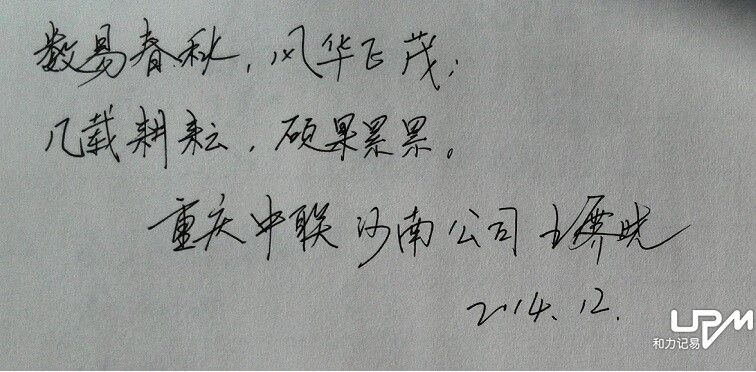 数易春秋，风华正茂；
几载耕耘，硕果累累。
重庆中联沙南公司
2014.12.
UPM
和力记易